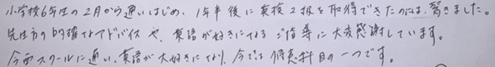 小学校6年生の2月から通いはじめ、1年半後に英検2級を取得できたのには、驚きました。
先生方の的確なアドバイスや、英語が好きになる ご指導に大変感謝しています。
今西スクールに通い、英語が大好きになり、今では得意科目の一つです。